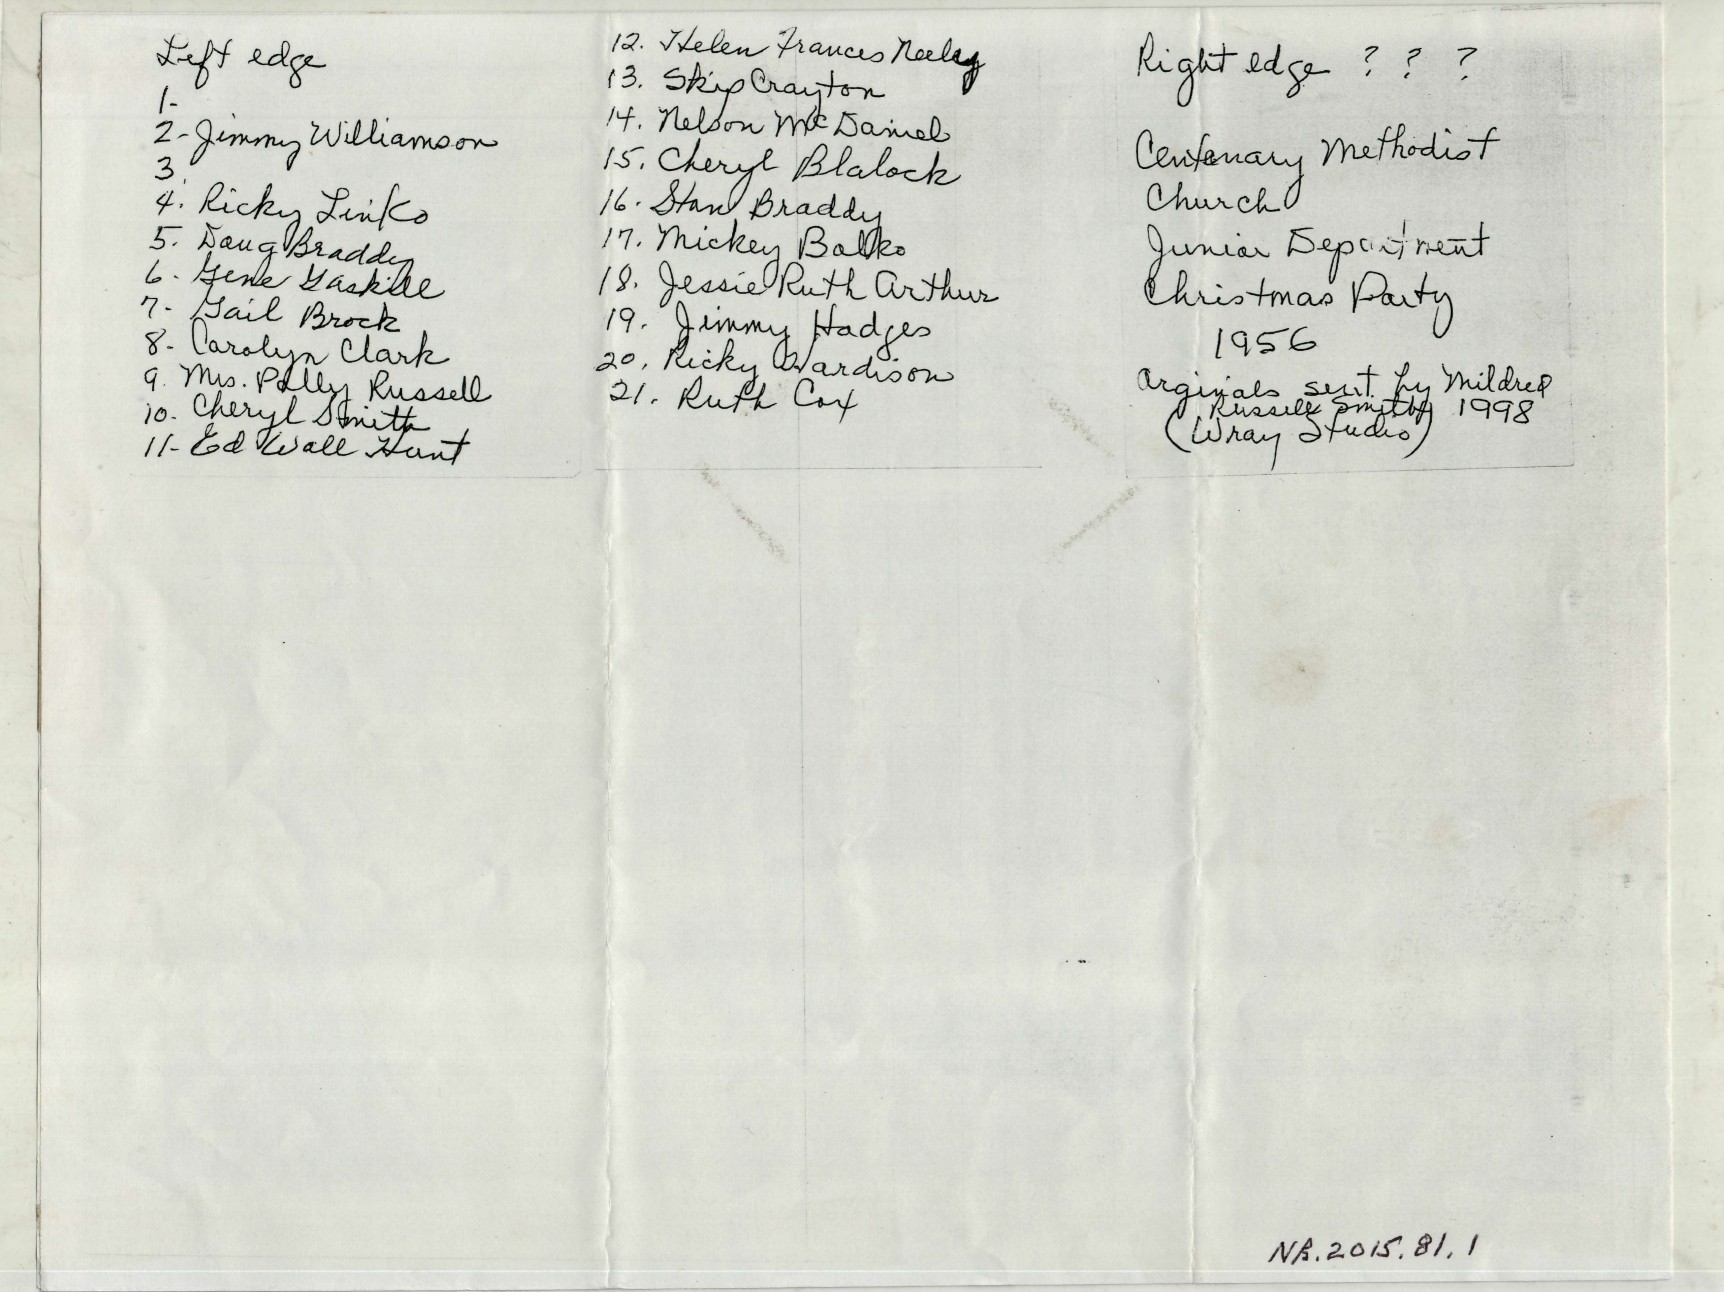 Left edge
1-
2- Jimmy Williamson
3.
4. Ricky Linko
5. Doug Braddy
6- Gene Gaskill
7- Gail Brock
8- Carolyn Clark
9. Mrs. Polly Russell
10. Cheryl Smith
11- Ed Wall Hunt
12. Helen Frances Neeley
13. Skip Crayton
14. Nelson McDaniel
15. Cheryl Blalock
16. Stan Braddy
17. Mickey Balko
18. Jessie Ruth Arthur
19. Jimmy Hodges
20. Ricky Wardison
21. Ruth Cox
Right edge ? ? ?
Centenary Methodist
Church
Junior Department
Christmas Party
1956
Orginals sent by Mildred
Russell Smith 1998
(Wray Studio)
NB.2015.81.1